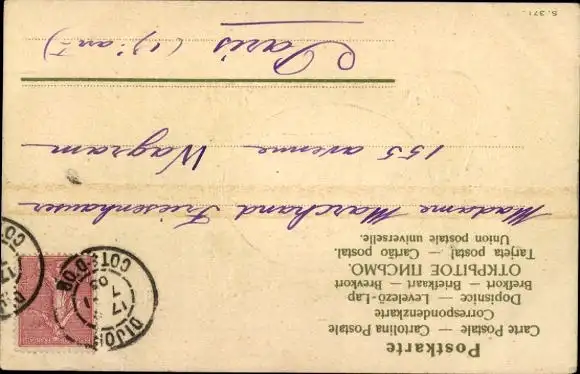 Postkarte
Carte Postale — Cartolina Postale
Correspondenzkarte
Dopisnice — Levelező-Lap
Brefkort — Briefkaart — Brevkort
ОТКРЫТОЕ ПИСЬМО.
Tarjeta postal — Cartão postal.
Union postale universelle.
Madame Marchand Friesenhauser
155 avenue Wagram
Paris (17e arrt)
S. 371.
DIJON
17
COTE-D'OR